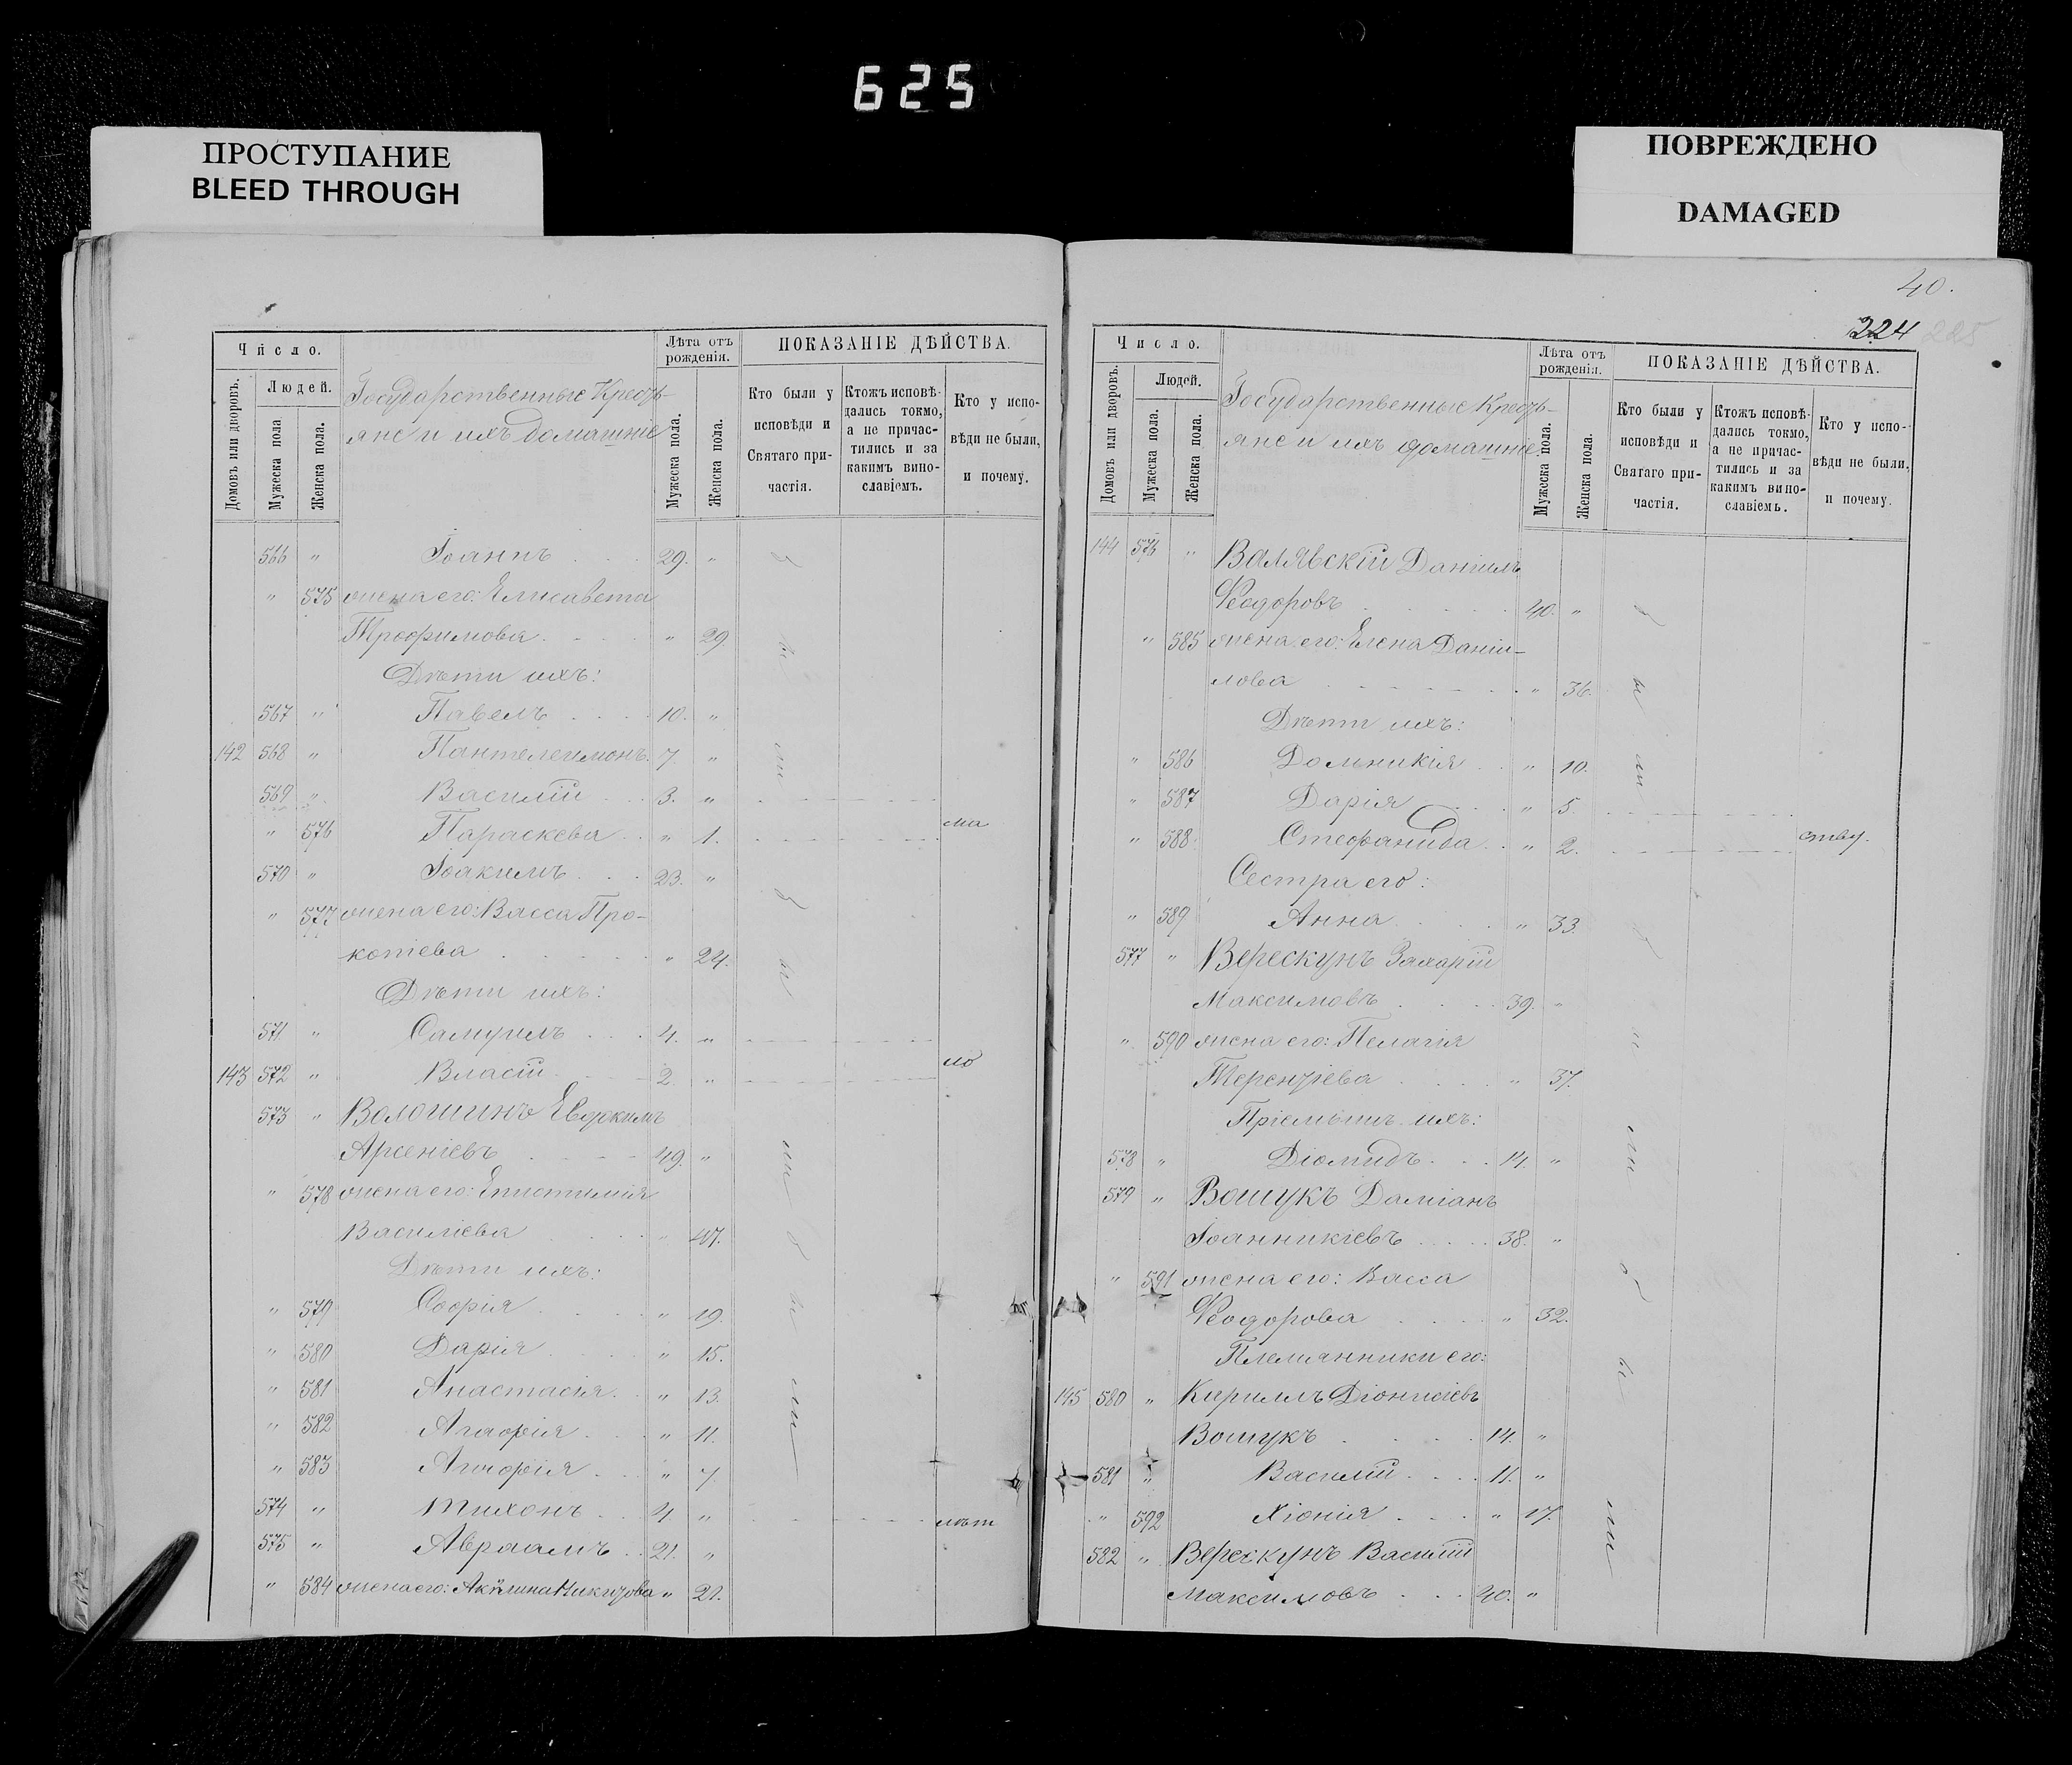 625
ПРОСТУПАНИЕ
BLEED THROUGH
ПОВРЕЖДЕНО
DAMAGED
Число.
Людей.
Домовъ или дворовъ.
Мужеска пола
Женска пола.
Государственные Кресть-
яне и ихъ домашніе
Лѣта отъ
рожденія.
Мужеска пола.
Женска пола.
ПОКАЗАНІЕ ДѢЙСТВА.
Кто были у
исповѣди и
Святаго при-
частія.
Ктожъ исповѣ-
дались токмо,
а не причас-
тились и за
какимъ вино-
славіемъ.
Кто у испо-
вѣди не были,
и почему.
566 " Іоаннъ 29. "
" 575 жена его: Елисавета
Трофимова " 29.
Дѣти ихъ:
567 " Павелъ 10. "
142 568 " Пантелеимонъ 7. "
569 " Василій 3. "
" 576 Параскева " 1. ма
570 " Іоакимъ 23. "
" 577 жена его: Васса Про-
копіева " 24.
Дѣти ихъ:
571 " Самуилъ 4. "
143 572 " Власій 2. " ло
573 " Волошинъ Евфкимъ
Арсеніевъ 49. "
" 578 жена его: Епистимія
Василіева " 47.
Дѣти ихъ:
" 579 Софія " 19.
" 580 Дарія " 15.
" 581 Анастасія " 13.
" 582 Агафія " 11.
" 583 Агафія " 7.
574 " Тихонъ 4 " лѣт
575 " Авраамъ 21. "
" 584 жена его: Акилина Никитова " 21.
40.
224 225
Число.
Людей.
Домовъ или дворовъ.
Мужеска пола.
Женска пола.
Государственные Кресть-
яне и ихъ домашніе
Лѣта отъ
рожденія.
Мужеска пола.
Женска пола.
ПОКАЗАНІЕ ДѢЙСТВА.
Кто были у
исповѣди и
Святаго при-
частія.
Ктожъ исповѣ-
дались токмо,
а не причас-
тились и за
какимъ вино-
славіемъ.
Кто у испо-
вѣди не были,
и почему.
144 576 " Валявскій Даніилъ
Ѳеодоровъ 40. "
" 585 жена его: Елена Даніи-
лова " 36.
Дѣти ихъ:
" 586 Домникія " 10.
" 587 Дарія " 5.
" 588 Стефанида " 2. ству.
Сестра его:
" 589 Анна " 33.
577 " Верескунъ Захарій
Максимовъ 39. "
" 590 жена его: Пелагія
Терентіева " 37.
Пріемышъ ихъ:
578 " Діомидъ 14. "
579 " Вошукъ Даміанъ
Іоанникіевъ 38. "
" 591 жена его: Васса
Ѳеодорова " 32.
Племянники его:
145 580 " Кириллъ Діонисіевъ
Вошукъ 14. "
581 " Василій 11. "
" 592 Хіонія " 17.
582 " Верескунъ Василій
Максимовъ 40. "